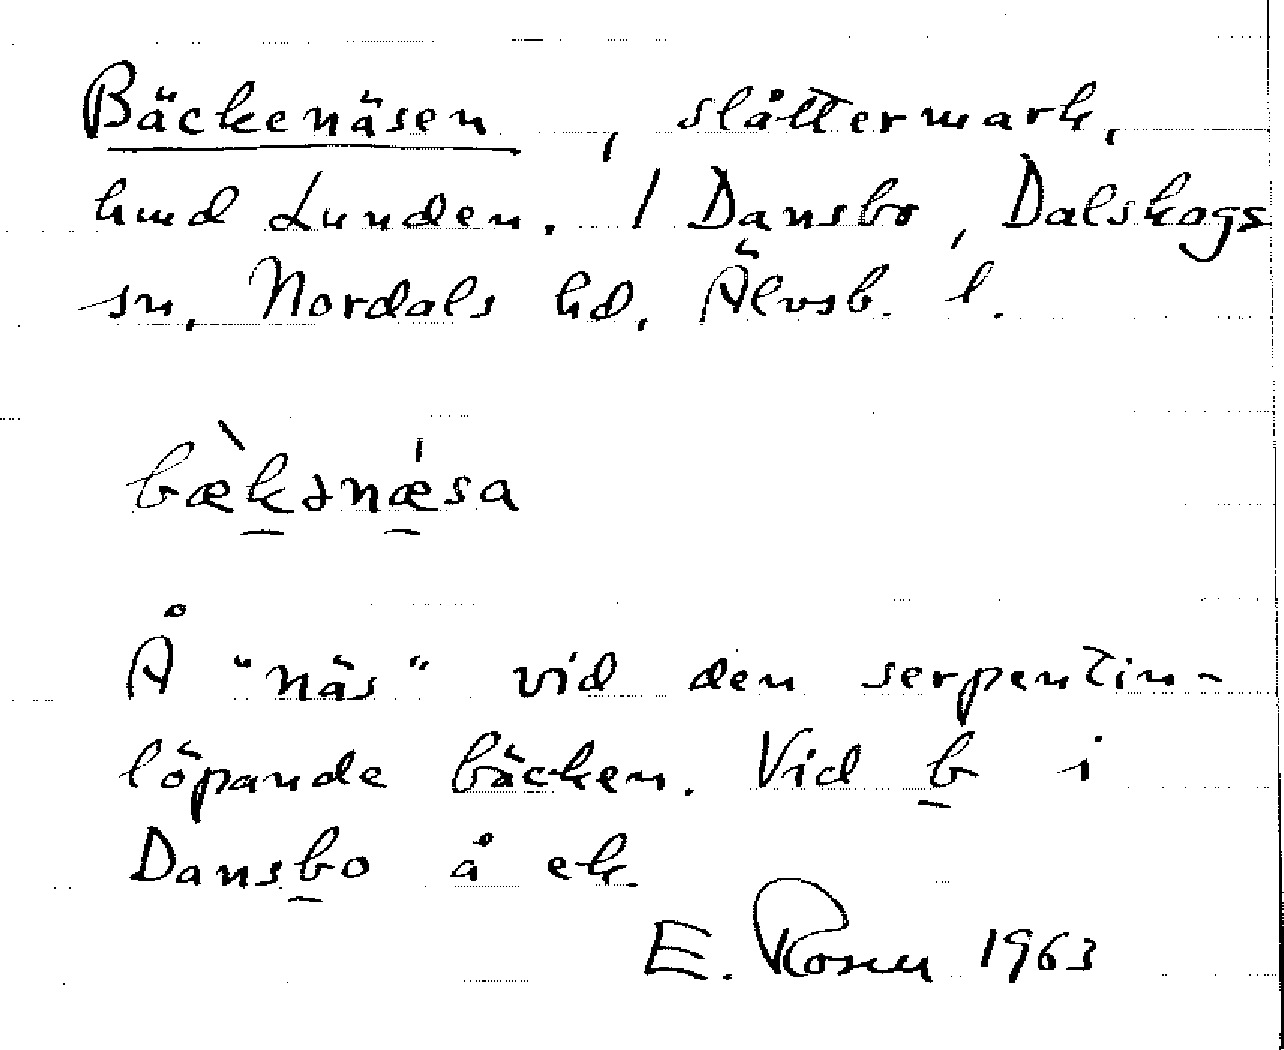 Bäckenäsen, slåttermark,
hmd Lunden. I Dansbo, Dalskogs
sn, Nordals hd, Älvsb. l.
bæ̀kənǽsa
Å "näs" vid den serpentin-
löpande bäcken. Vid b i
Dansbo å ek.
E. Rosen 1963